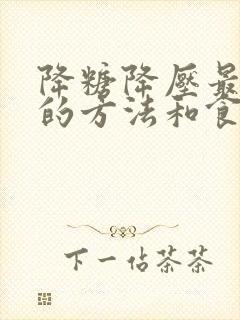 降糖降压最
的方法和食
下一佔茶茶